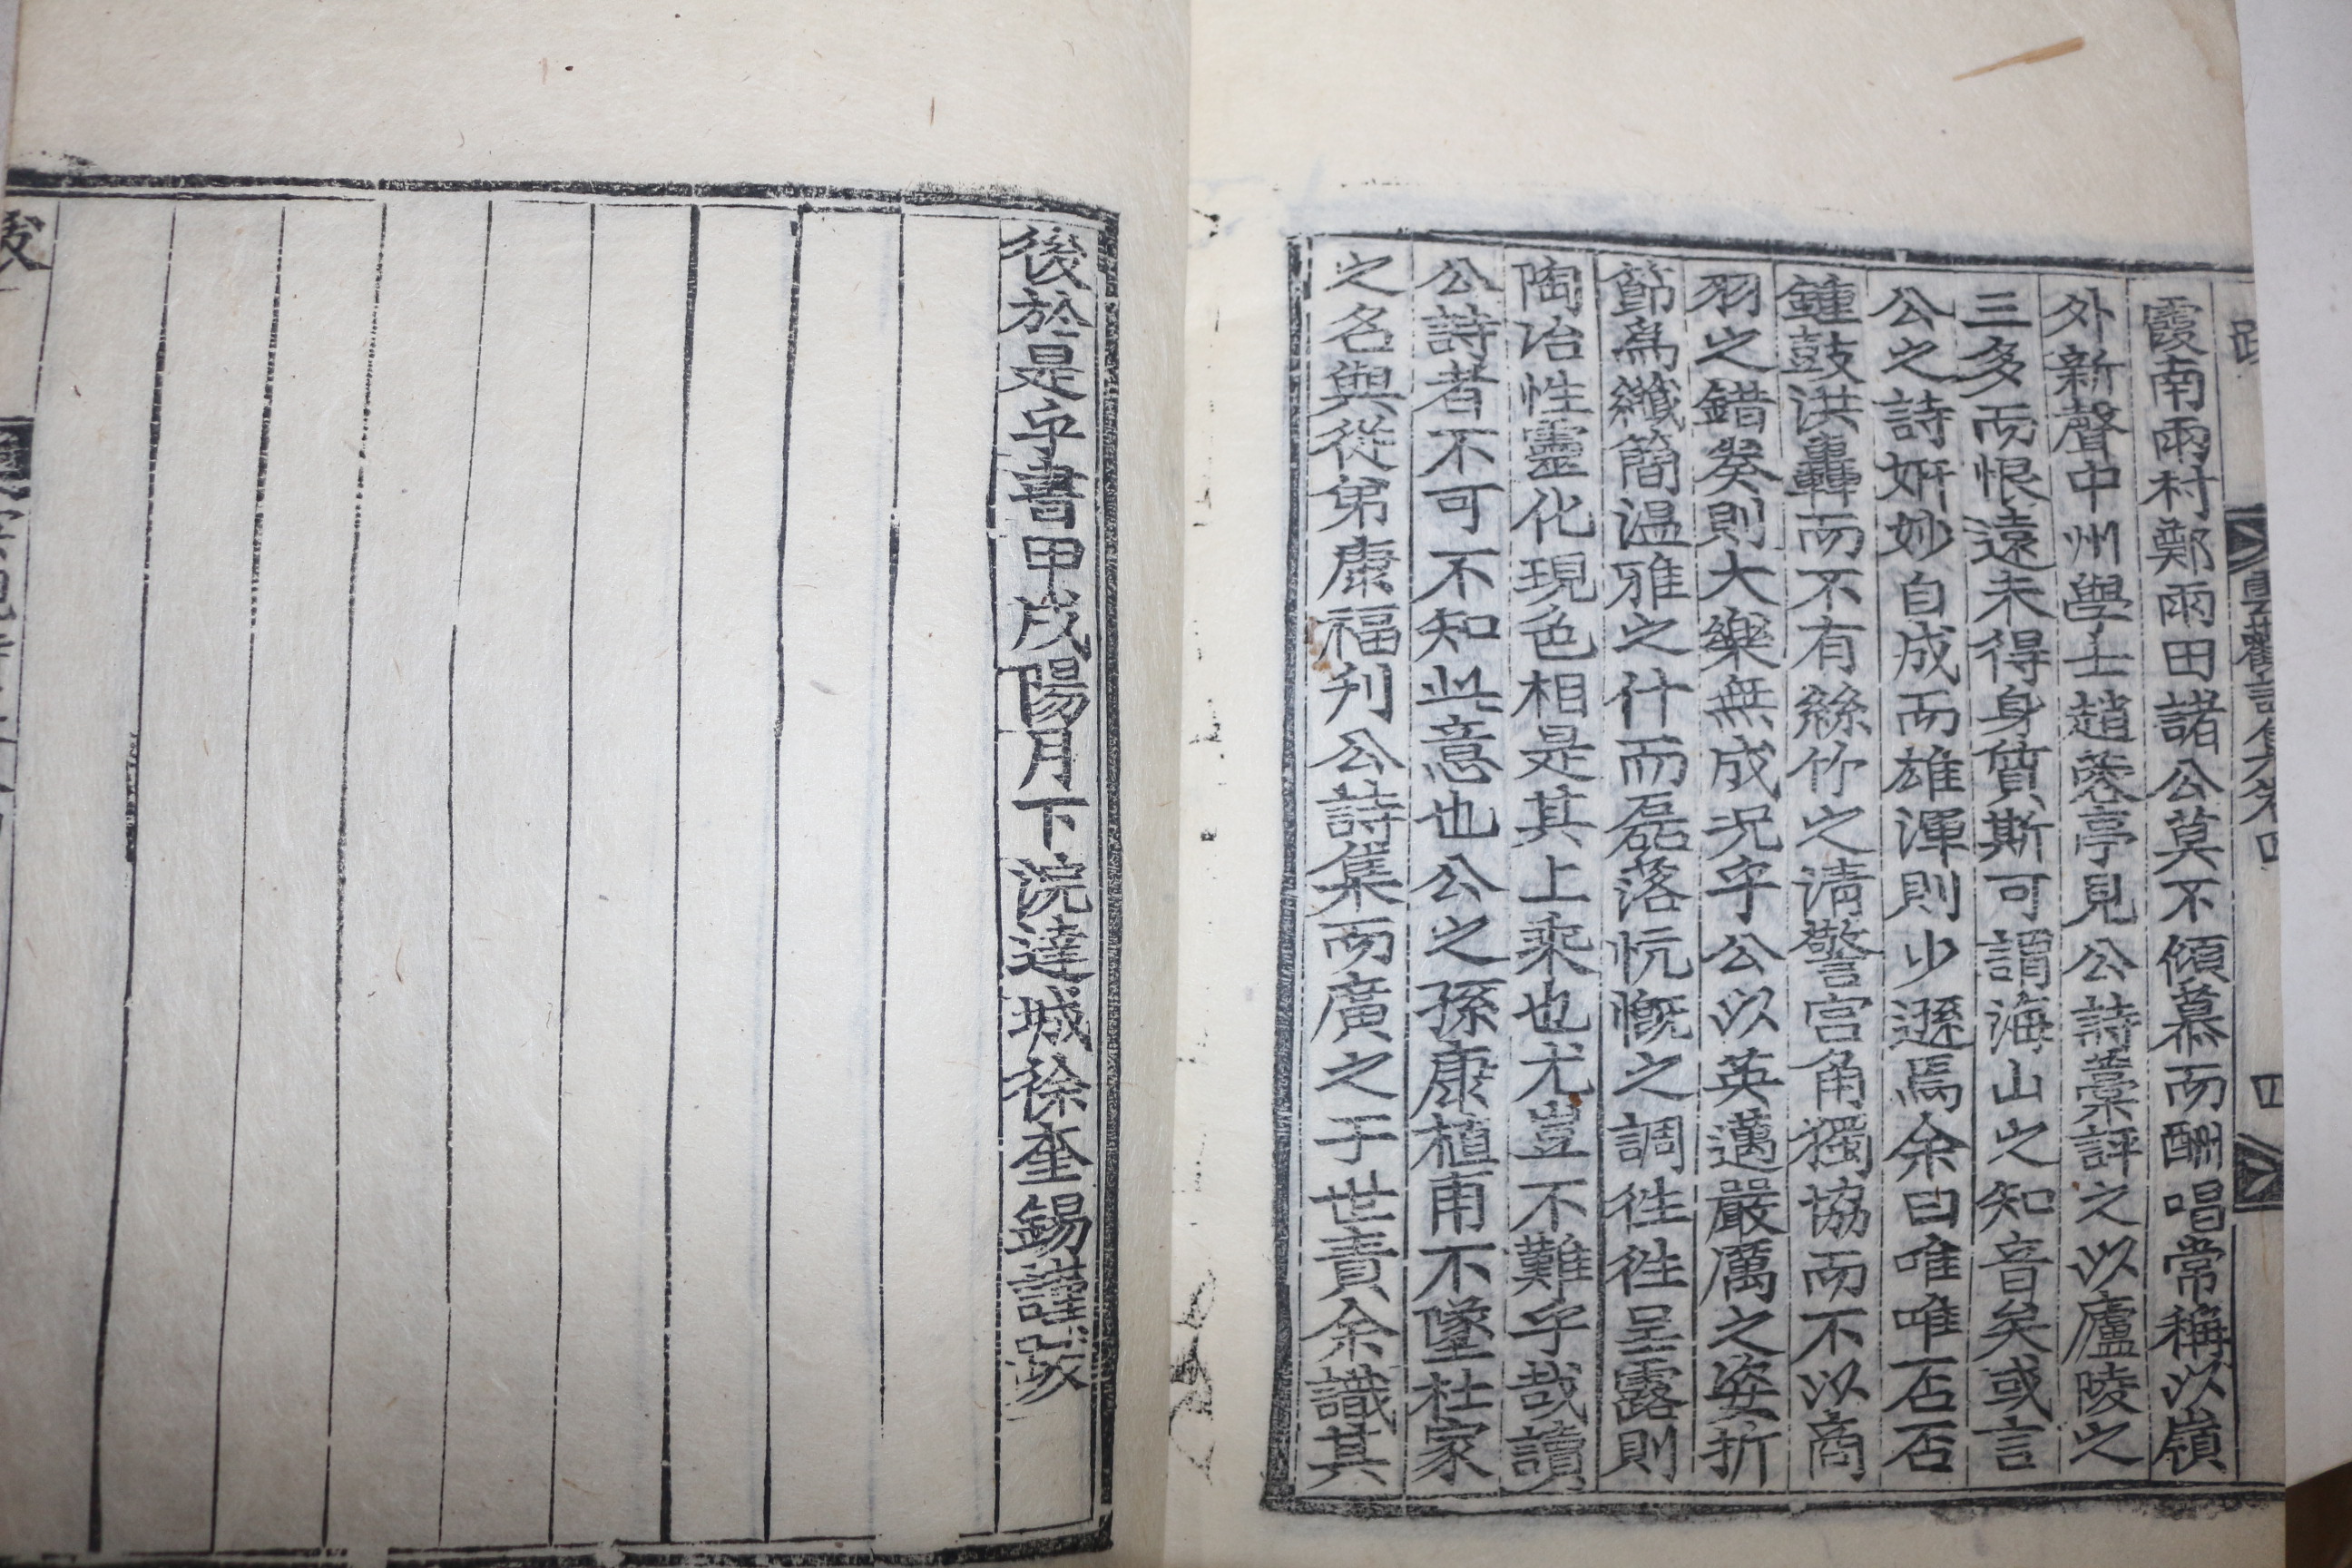 霞南雨村鄭雨田諸公莫不傾慕而酬唱常稱以嶺
外新聲中州學士趙蓉亭見公詩藁評之以廬陵之
三多而恨遠未得身質斯可謂海山之知音矣或言
公之詩姸妙自成而雄渾則少遜焉余曰唯唯否否
鍾鼓洪轟而不有絲竹之淸警宮角獨協而不以商
羽之錯癸則大樂無成况乎公以英邁嚴厲之姿折
節爲纖簡溫雅之什而磊落忼慨之調徃徃呈露則
陶冶性靈化現色相是其上乘也尤豈不難乎哉讀
公詩者不可不知此意也公之孫康植甫不墜杜家
之名與從弟康福刋公詩集而廣之于世責余識其
後於是乎書甲戌陽月下浣達城徐奎錫謹跋
跋
雲觀詩集卷四
四
跋